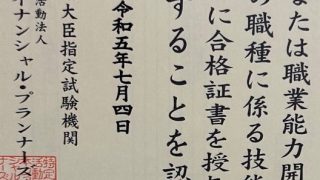 たは職業能力開
の職種に係る技能
に合格証書を授与
することを認
令和五年七月四日
大臣指定試験機関
活動法人
イナンシャル・プランナーズ